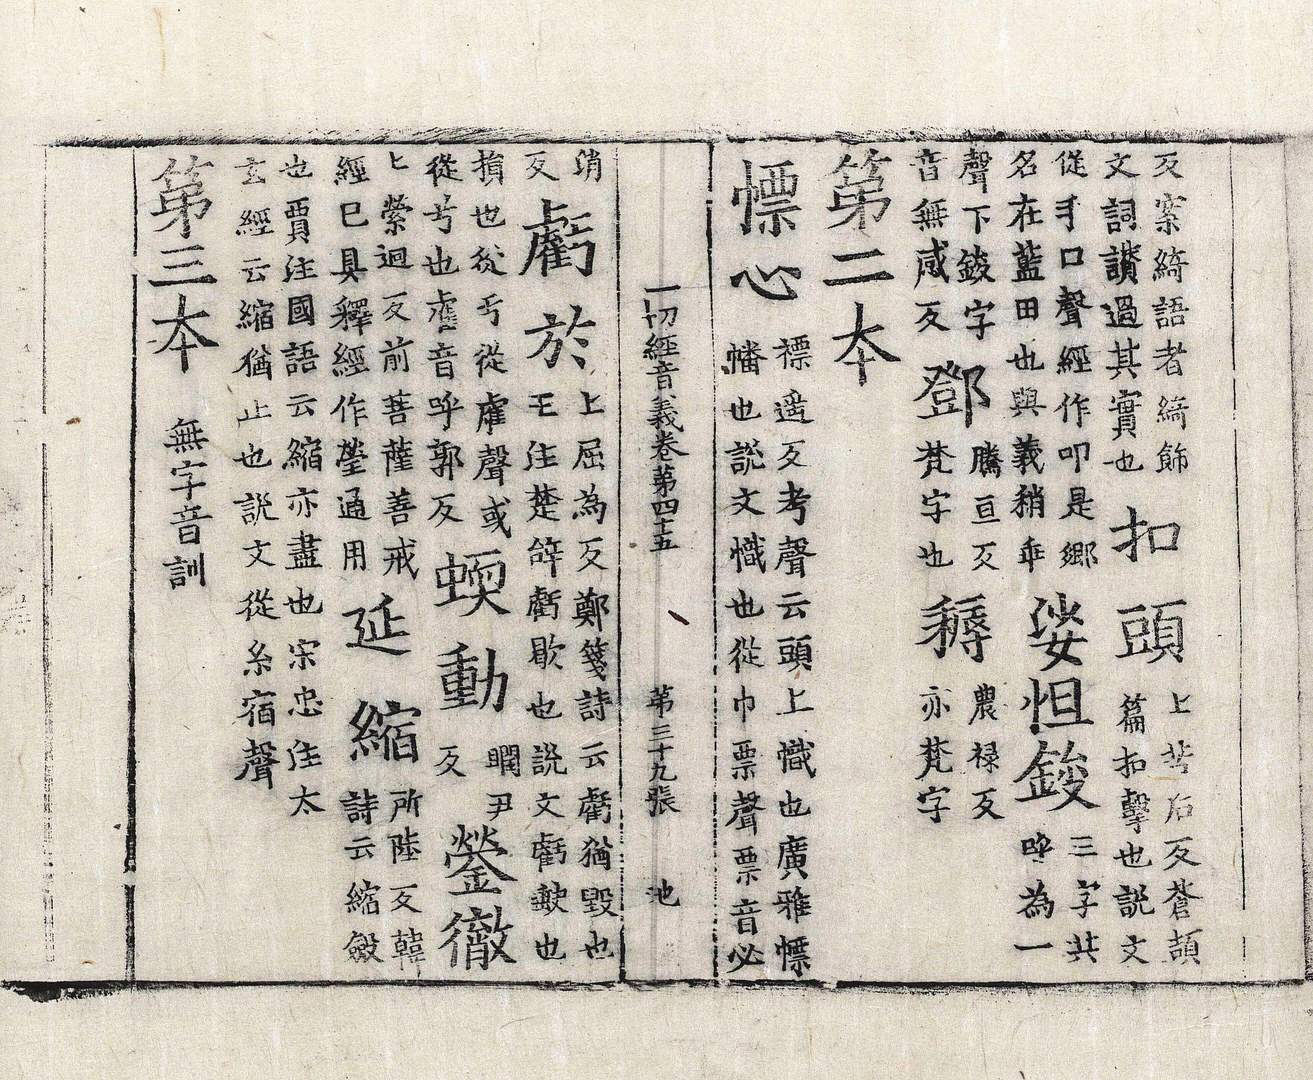 反案綺語者綺飾
文詞讃過其實也
扣頭
上苦后反蒼頡
篇扣擊也說文
從手口聲經作叩是鄉
名在藍田也與義稍乖
娑怛鋑
三字共
呼為一
聲下鋑字
音無咸反
鄧
騰亘反
梵字也
耨
農祿反
亦梵字
第二本
幖心
褾遥反考聲云頭上幟也廣雅幖
幡也說文幟也從巾票聲票音必
一切經音義卷第四十五 第三十九張 池
消
反
虧於
上屈為反鄭箋詩云虧猶毀也
王注楚辝虧歇也說文虧也
損也從亐從雐聲或
從兮也雐音呼郭反
蝡動
瞤尹
反
鎣徹
上縈迥反前菩薩善戒
經已具釋經作瑩通用
延縮
所陸反韓
詩云縮斂
也賈注國語云縮亦盡也宋忠注太
玄經云縮猶止也說文從糸宿聲
第三本 無字音訓